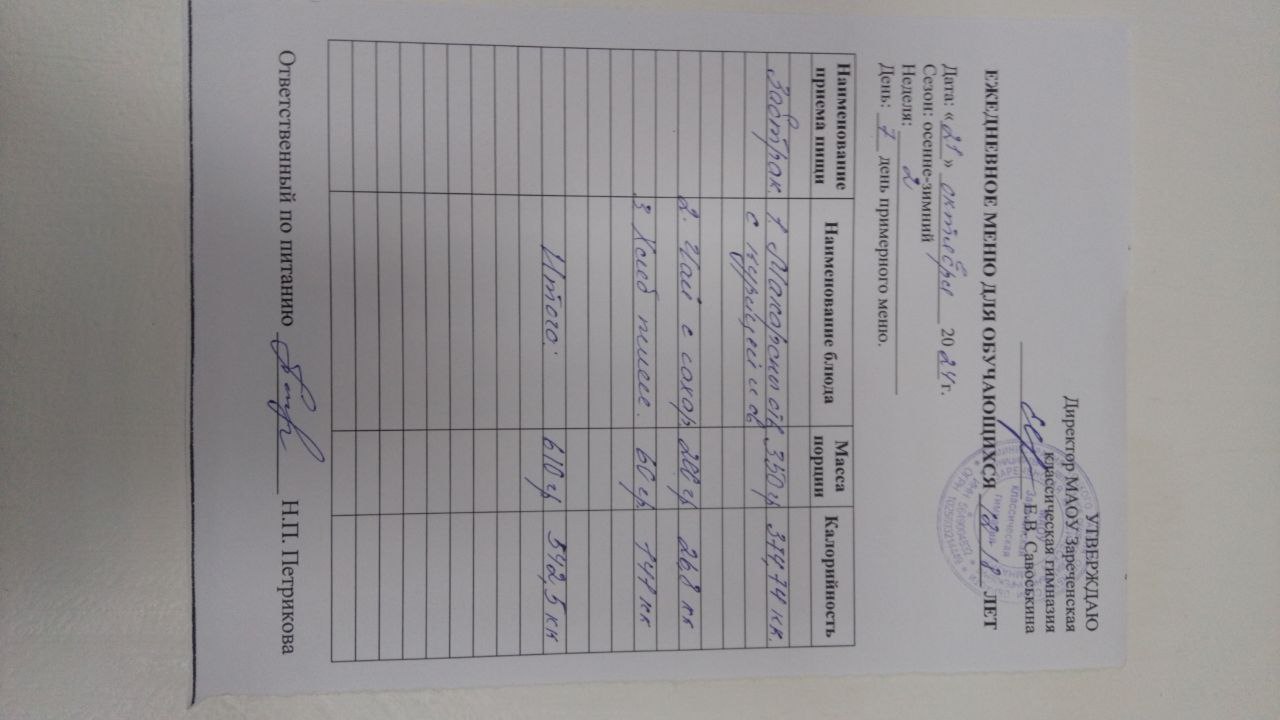 УТВЕРЖДАЮ
Директор МАОУ Зареченская
классическая гимназия
Е.В. Савоськина
ЕЖЕДНЕВНОЕ МЕНЮ ДЛЯ ОБУЧАЮЩИХСЯ 12-18 ЛЕТ
Дата: «21» октября 2024 г.
Сезон: осенне-зимний
Неделя: 2
День: 7 день примерного меню.
Наименование приема пищи Наименование блюда Масса порции Калорийность
Завтрак 1. Макароны отв 350 гр 374,74 кк.
с курицей и ов
2. Чай с сахар 200 гр 26,8 кк
3. Хлеб пшен. 60 гр 141 кк
Итого: 610 гр 542,5 кк
Ответственный по питанию Н.П. Петрикова